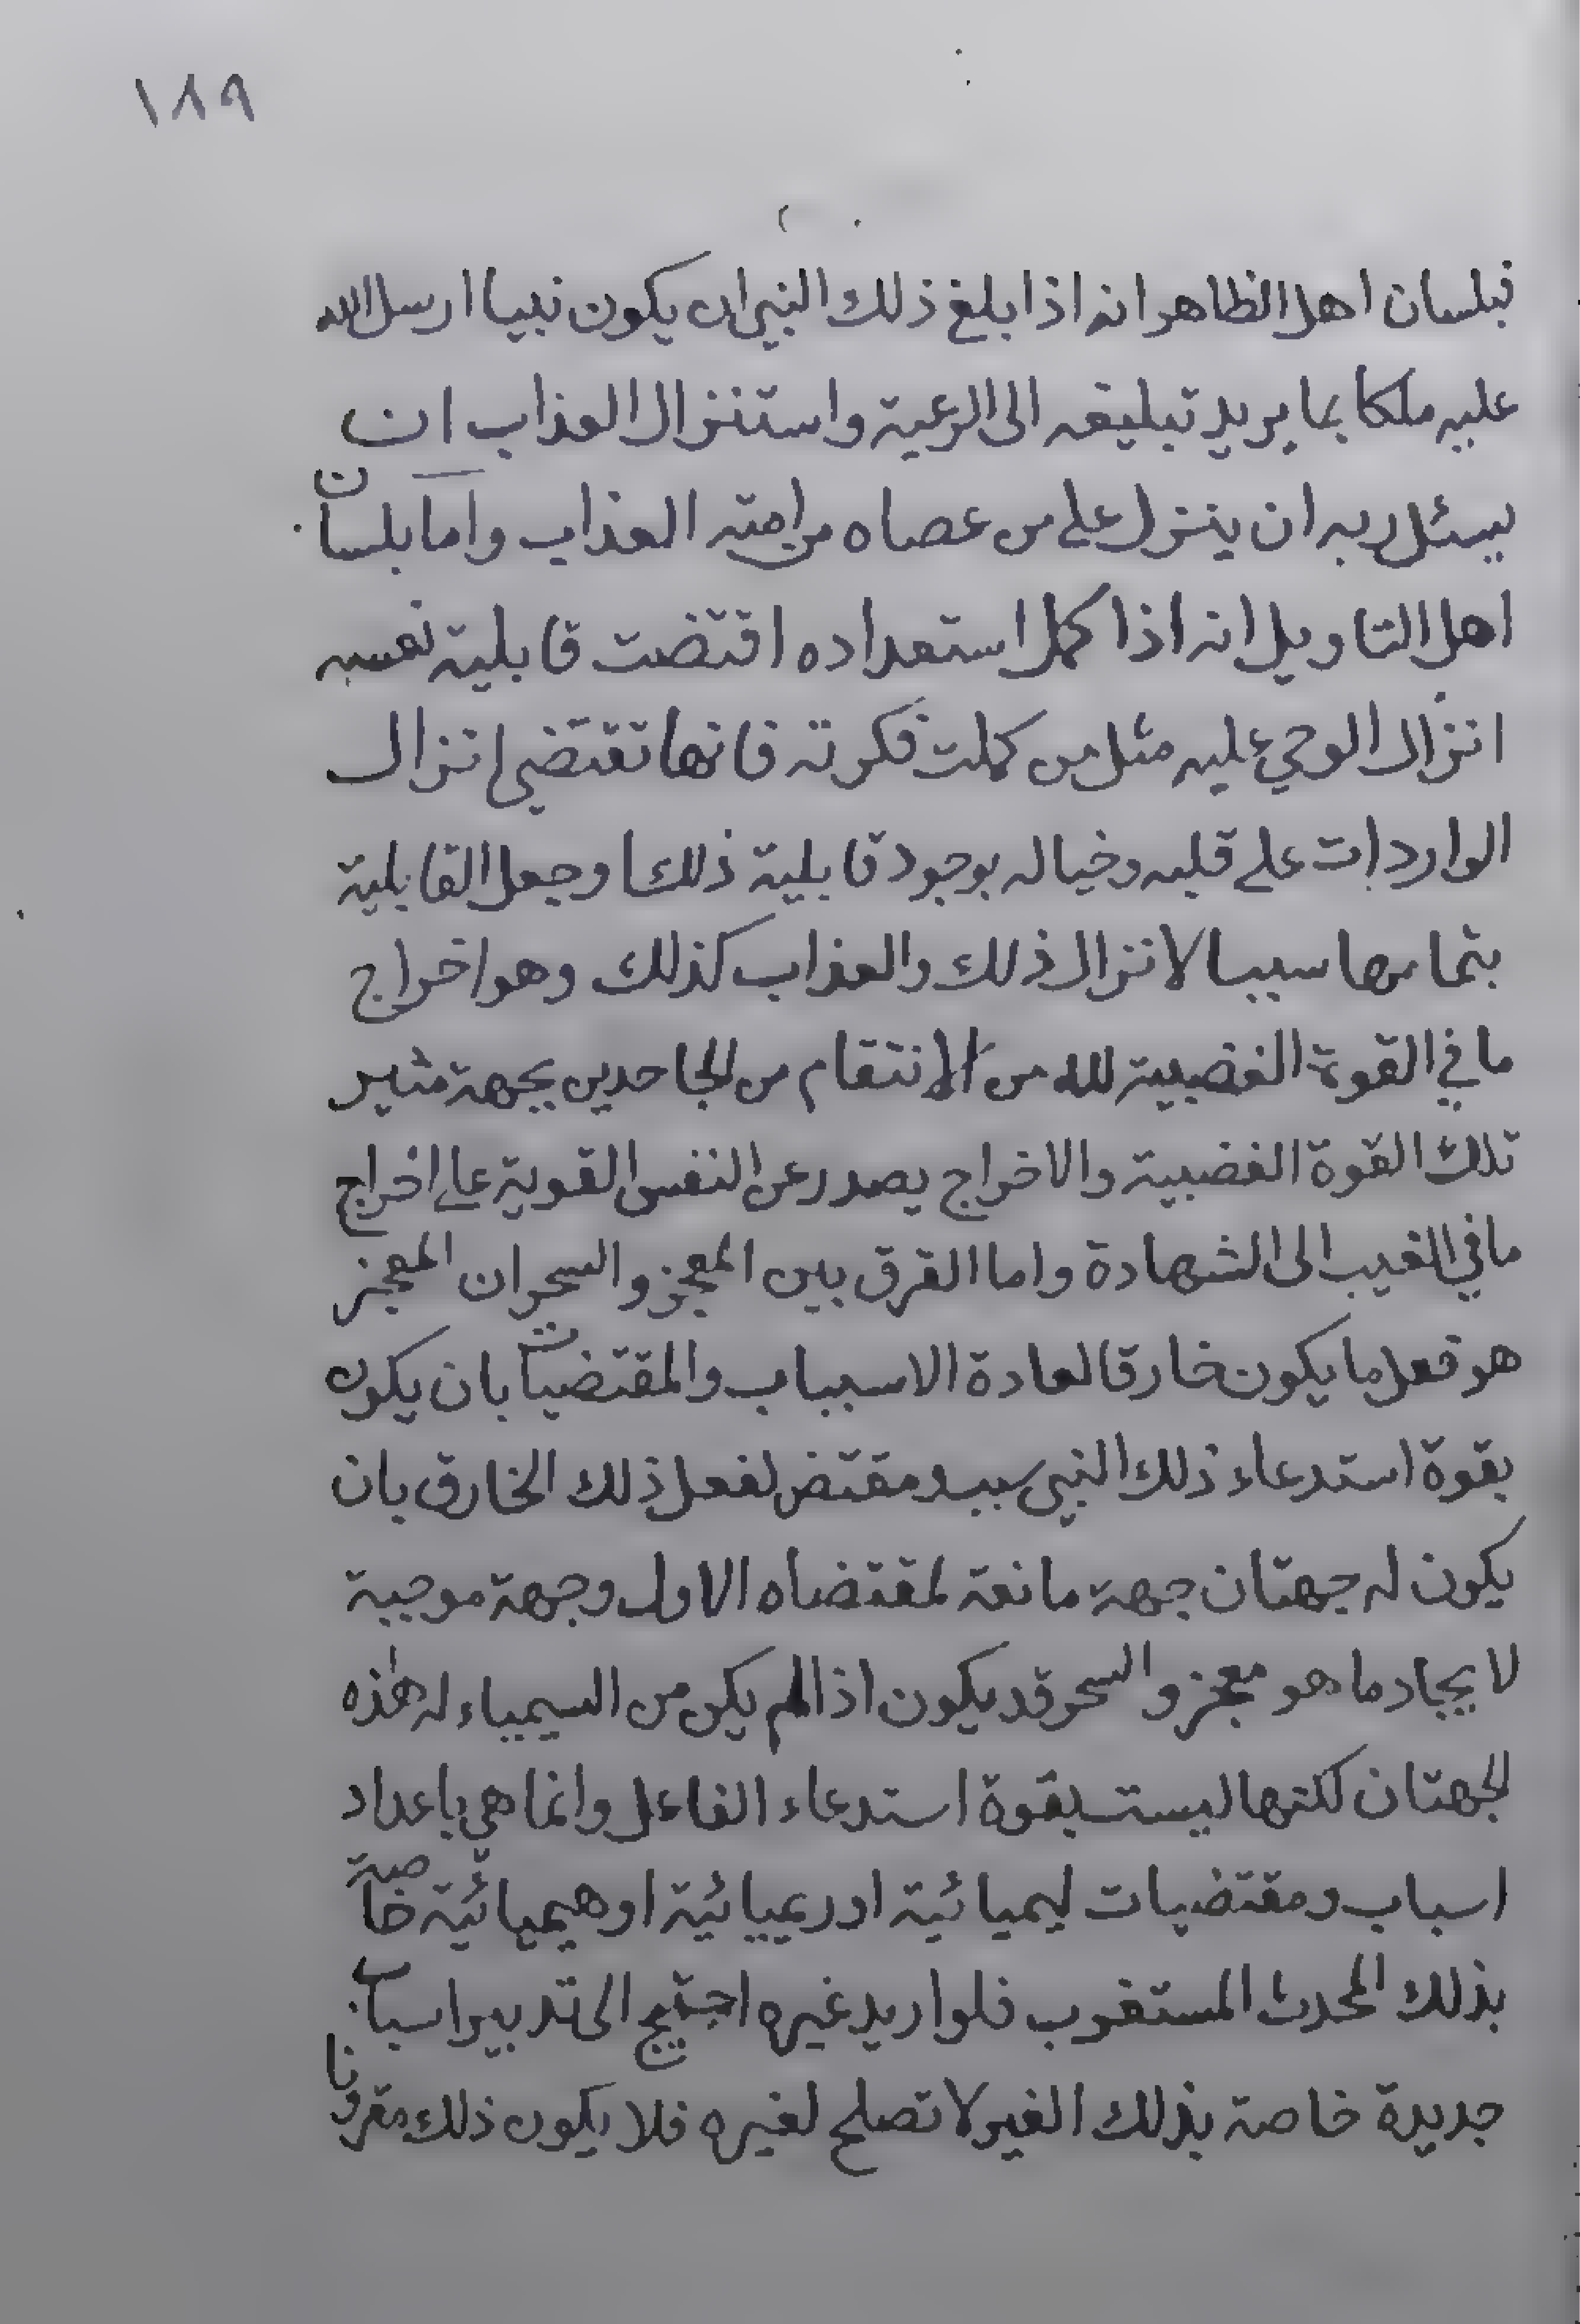 ١٨٩
فبلسان اهل الظاهر انه اذا بلغ ذلك النبي ان يكون نبيا ارسل الله
عليه ملكا بما يريد تبليغه الى الرعية واستنزال العذاب ان
يسئل ربه ان ينزل على من عصاه من امته العذاب واما بلسان
اهل التاويل انه اذا كمل استعداده اقتضت قابلية نفسه
انزال الوحي عليه مثل من كملت فكرته فانها تقتضي انزال
الواردات على قلبه وخياله بوجود قابلية ذلك وجعل القابلية
بتمامها سببا لانزال ذلك والعذاب كذلك وهو اخراج
ما في القوة الغضبية لله من الانتقام من الجاحدين بجهة مثير
تلك القوة الغضبية والاخراج يصدر عن النفس القوية على اخراج
ما في الغيب الى الشهادة واما الفرق بين المعجز والسحر ان المعجز
هو فعل ما يكون خارقا لعادة الاسباب والمقتضيات بان يكون
بقوة استدعاء ذلك النبي سبب ومقتض لفعل ذلك الخارق بان
يكون له جهتان جهة مانعة لمقتضاه الاول وجهة موجبة
لايجاد ما هو معجز والسحر قد يكون اذا لم يكن من السيمياء له هذه
الجهتان لكنها ليست بقوة استدعاء الفاعل وانما هي باعداد
اسباب ومقتضيات ليميائية او ريميائية او هيميائية خاصة
بذلك المحدث المستغرب فلو اريد غيره احتيج الى تدبير اسباب
جديدة خاصة بذلك الغير لا تصلح لغيره فلا يكون ذلك مقرونا